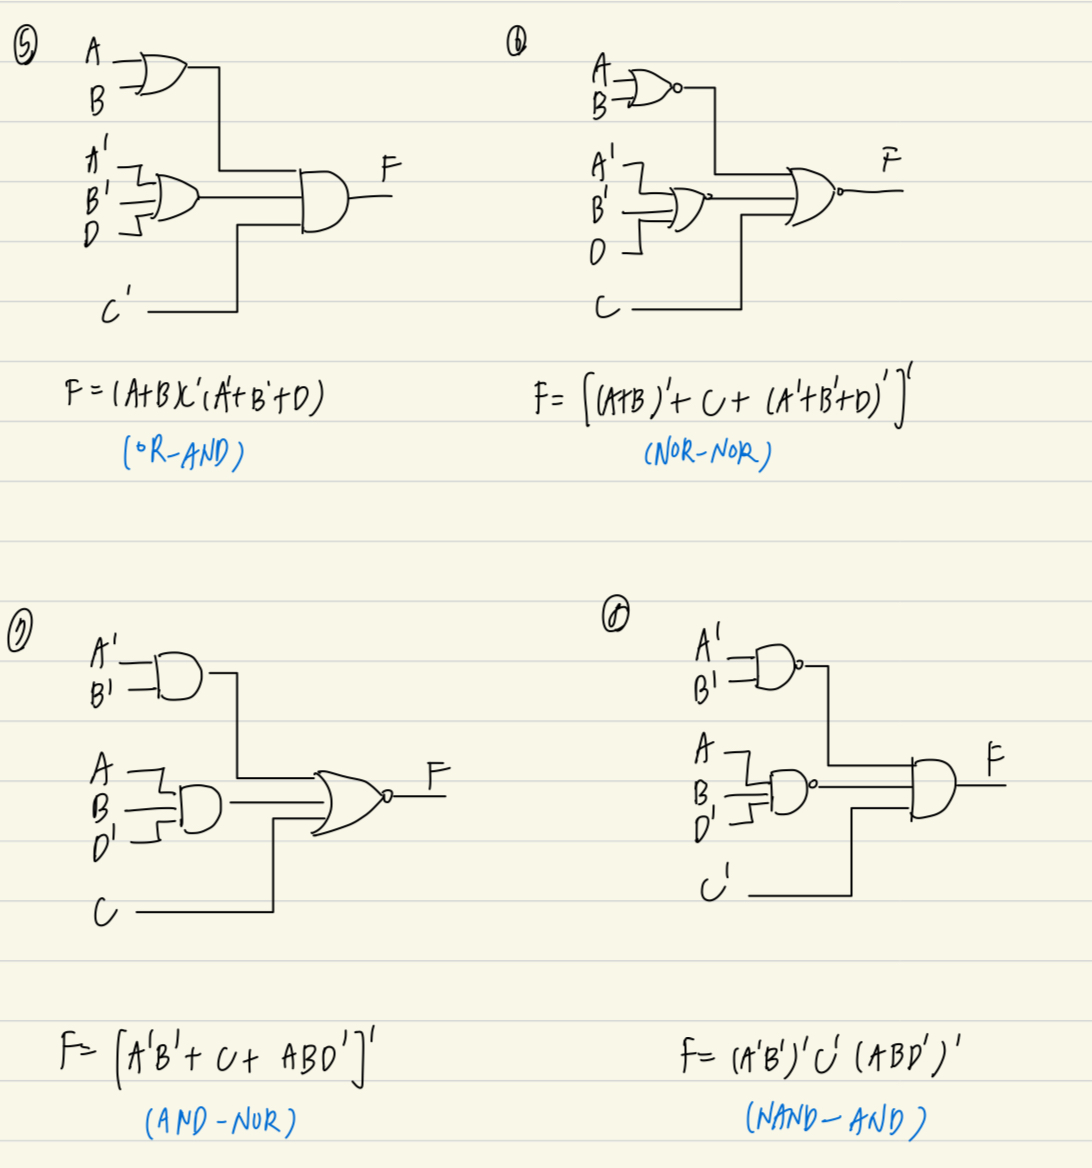 ⑤
A
B
A'
B'
D
C'
F
F = (A+B)C'(A'+B'+D)
(OR-AND)
⑥
A
B
A'
B'
D
C
F
F= [(A+B)'+ C + (A'+B'+D)']'
(NOR-NOR)
⑦
A'
B'
A
B
D'
C
F
F= [A'B'+ C + ABD']'
(AND-NOR)
⑧
A'
B'
A
B
D'
C'
F
F= (A'B')'C'(ABD')'
(NAND-AND)